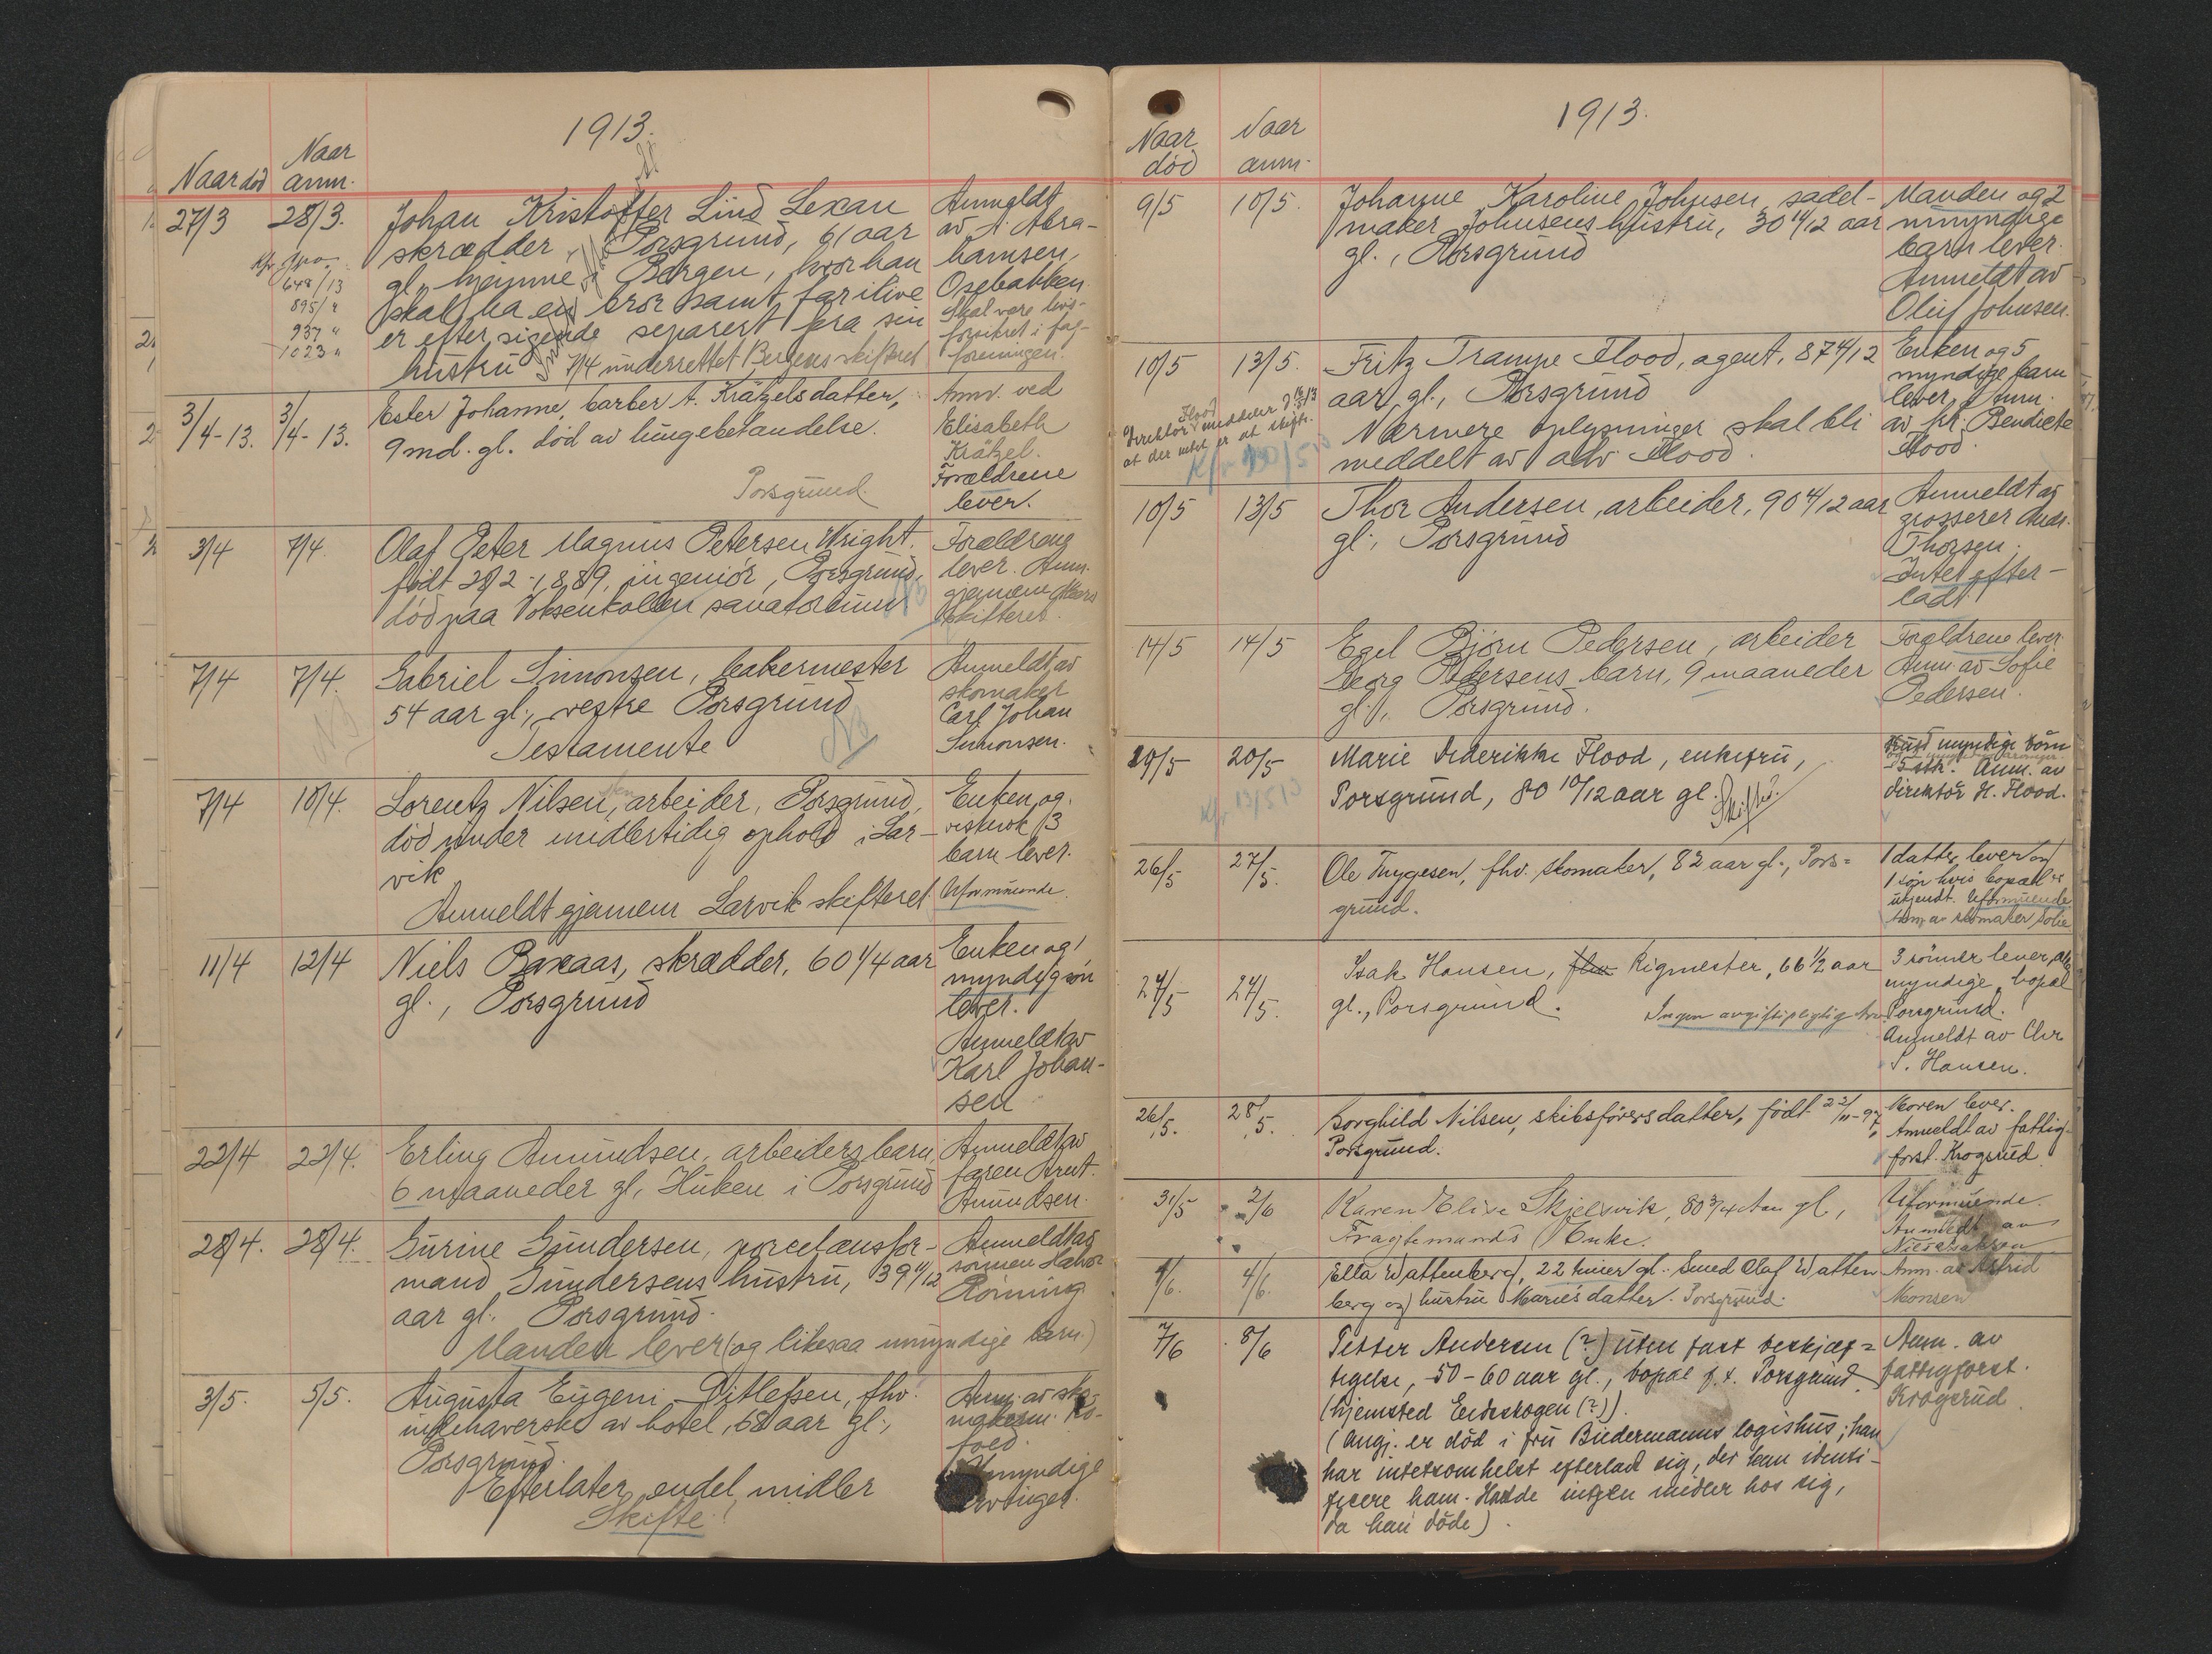 1913.
Naar død
Naar
anm.
27/3
28/3.
Johan Kristoffer Lind Lexau
skrædder, Porsgrund, 61 aar
gl., hjemme i Bergen, hvor han
skal ha en bror samt far ilive
er efter sigende separert fra sin
hustru
7/4 underrettet Bergens skifteret
Kfr. Jpro.
648/13
895/"
937 "
1023 "
Anmeldt
av A. Abra-
hamsen,
Osebakken
Skal være livs-
forsikret i fag-
foreningen.
3/4-13.
3/4-13.
Ester Johanne, barber A. Krätzels datter,
9 md. gl. død av lungebetændelse.
Porsgrund.
Anm. ved
Elisabeth
Krätzel.
Forældrene
lever.
3/4
7/4.
Olaf Peter Magnus Petersen Wright.
født 28/2-1889, ingeniør, Porsgrund,
død paa Voksenkollen sanatorium
Forældrene
lever. Anm.
gjennem Akers
skifteret.
7/4
7/4.
Gabriel Simonsen, bakermester
54 aar gl., vestre Porsgrund
Testamente
NB
Anmeldt av
skomaker
Carl Johan
Simonsen.
7/4
10/4.
Lorentz Nilsen, arbeider, Porsgrund,
død under midlertidig ophold i Lar-
vik
Anmeldt gjennem Larvik skifteret
Enken og
vistnok 3
barn lever.
Uformuende.
11/4
12/4
Niels Baxaas, skrædder, 60 1/4 aar
gl., Porsgrund
Enken og 1
myndig søn
lever.
Anmeldt av
Karl Johan-
sen
22/4
22/4.
Erling Amundsen, arbeiders barn,
6 maaneder gl, Huken i Porsgrund
Anmeldt av
faren Arnt
Amundsen.
28/4.
28/4.
Gurine Gundersen, porcelænsfor-
mand Gundersens hustru, 39 11/12
aar gl. Porsgrund.
Manden lever (og likesaa umyndige barn.)
Anmeldt av
sønnen Halvor
Rönning
3/5.
5/5.
Augusta Eugeni Ditlefsen, fhv.
indehaverske av hotel, 68 aar gl.,
Porsgrund.
Efterlater endel midler
Skifte!
Anm. av sko-
makerm. Ro-
foed.
Umyndige
arvinger.
1913.
Naar
død
Naar
anm.
9/5
10/5.
Johanne Karoline Johnsen, sadel-
maker Johnsens hustru, 30 11/12 aar
gl., Porsgrund
Manden og 2
umyndige
barn lever.
Anmeldt av
Oluf Johnsen.
10/5
13/5.
Fritz Trampe Flood, agent, 87 4/12
aar gl., Porsgrund
Nærmere oplysninger skal bli
meddelt av adv. Flood.
Direktør Flood meddeler
at der intet er at skifte.
Enken og 5
myndige barn
lever. Anm.
av fr. Bendicte
Flood.
10/5
13/5
Thor Andersen, arbeider, 90 4/12 aar
gl., Porsgrund
Anmeldt av
grosserer Andr.
Thorsen.
Intet efter-
ladt
14/5
14/5
Egil Bjørn Pedersen, arbeider
Georg Pedersens barn, 9 maaneder
gl., Porsgrund.
Forældrene lever
Anm. av Sofie
Pedersen.
19/5
20/5
Marie Dederikke Flood, enkefru,
Porsgrund, 80 10/12 aar gl.
Skifte?
Kfr. 13/5 13
Kuns myndige børn
5 stk. Anm. av
direktør H. Flood.
26/5
27/5.
Ole Thygesen, fhv. skomaker, 82 aar gl., Pors=
grund.
1 datter lever og
1 søn hvis bopæl er
ukjendt. Uformuende
Anm. av skomaker Solie
24/5
24/5.
Isak Hansen, fhv. Rigmester, 66 1/2 aar
gl., Porsgrund.
Ingen avgiftspligtig arv.
3 sønner lever, alle
myndige, bopæl
Porsgrund.
Anmeldt av Chr.
S. Hansen.
26/5.
28/5.
Borghild Nilsen, skibsførers datter, født 22/11-97,
Porsgrund.
Moren lever.
Anmeldt av fattig-
forst. Krogsrud
31/5
2/6
Karen Elise Skjelsvik, 80 3/4 Aar gl.,
Fragtemands Enke.
Uformuende.
Anmeldt av
4/6.
4/6.
Ella Wattenberg, 22 timer gl. Smed Olaf Watten
berg og hustru Maries datter. Porsgrund.
Anm. av Astrid
Monsen
7/6
8/6
Petter Andersen (?) uten fast beskjæf=
tigelse, 50-60 aar gl., bopæl f.t. Porsgrund
(hjemsted Eidskogen (?)).
(Angj. er død i fru Biedermanns logishus; han
har intetsomhelst efterladt sig, der kan identi-
ficere ham. Hadde ingen midler hos sig,
da han døde).
Anm. av
fattigforst.
Krogsrud.